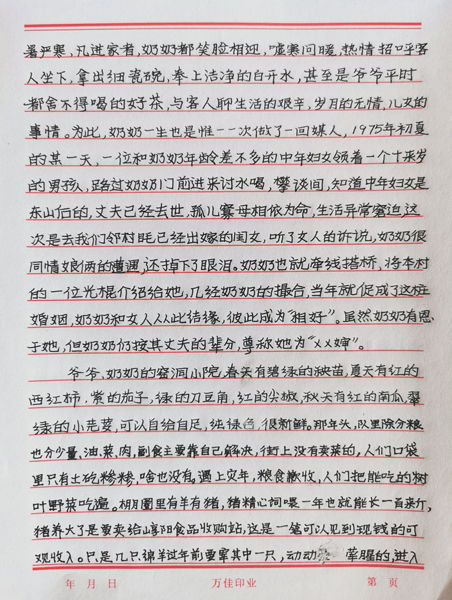 暑严寒,凡进家者,奶奶都笑脸相迎,嘘寒问暖,热情招呼客
人坐下,拿出细瓷碗,奉上洁净的白开水,甚至是爷爷平时
都舍不得喝的好茶,与客人聊生活的艰辛,岁月的无情,儿女的
事情。为此,奶奶一生也是惟一一次做了一回媒人,1975年初夏
的某一天,一位和奶奶年龄差不多的中年妇女领着一个十来岁
的男孩,路过奶奶门前进来讨水喝,攀谈间,知道中年妇女是
东山后的,丈夫已经去世,孤儿寡母相依为命,生活异常窘迫,这
次是去我们邻村眊已经出嫁的闺女,听了女人的诉说,奶奶很
同情娘俩的遭遇,还掉下了眼泪。奶奶也就牵线搭桥,将本村
的一位光棍介绍给她,几经奶奶的撮合,当年就促成了这桩
婚姻,奶奶和女人从此结缘,彼此成为"相好"。虽然奶奶有恩
于她,但奶奶仍按其丈夫的辈分,尊称她为"××婶"。
爷爷、奶奶的窑洞小院,春天有碧绿的秧苗,夏天有红的
西红柿,紫的茄子,绿的刀豆角,红的尖椒,秋天有红的南瓜,翠
绿的小芫荽,可以自给自足,纯绿色,很新鲜。那年头,队里除分粮
也分少量,油,菜,肉,副食主要靠自己解决,街上没有卖菜的,人们口袋
里只有土圪糁糁,啥也没有。遇上灾年,粮食歉收,人们把能吃的树
叶野菜吃遍。棚圈里有羊有猪,猪精心饲喂一年也就能长一百来斤,
猪养大了是要卖给山阳食品收购站,这是一笔可以见到现钱的可
观收入。只是几只绵羊过年前要宰其中一只,动动 荤腥的,进入
年 月 日 万佳印业 第 页